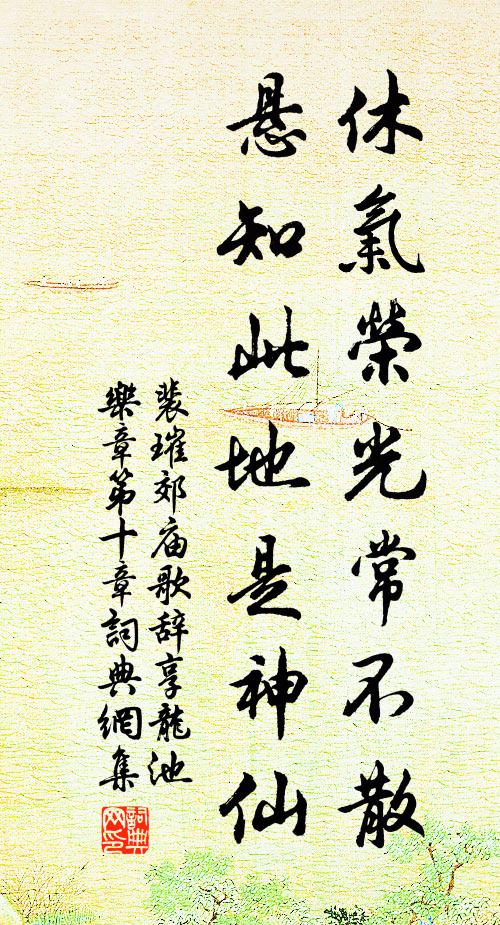 休氣榮光常不散
悬知此地是神仙
裴璀郊庙歌辞享龍池
樂章第十章詞典網集
詞典网印